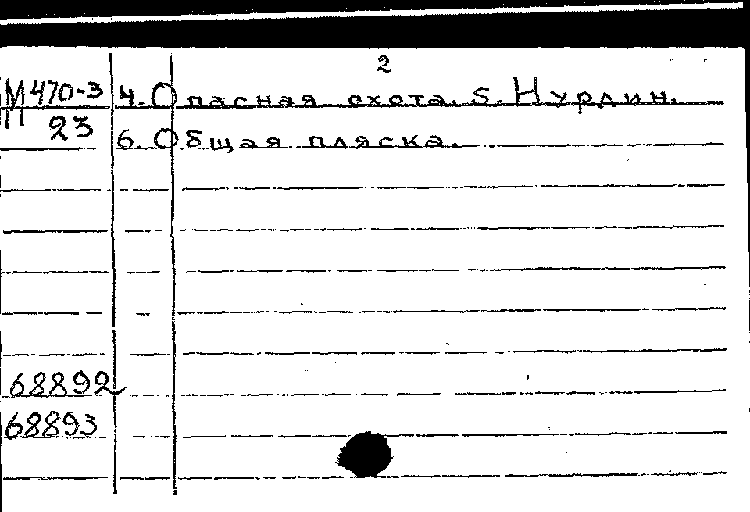 2
М470-3 4. Опасная охота. 5. Нурлин.
23 6. Общая пляска.
68892
68893